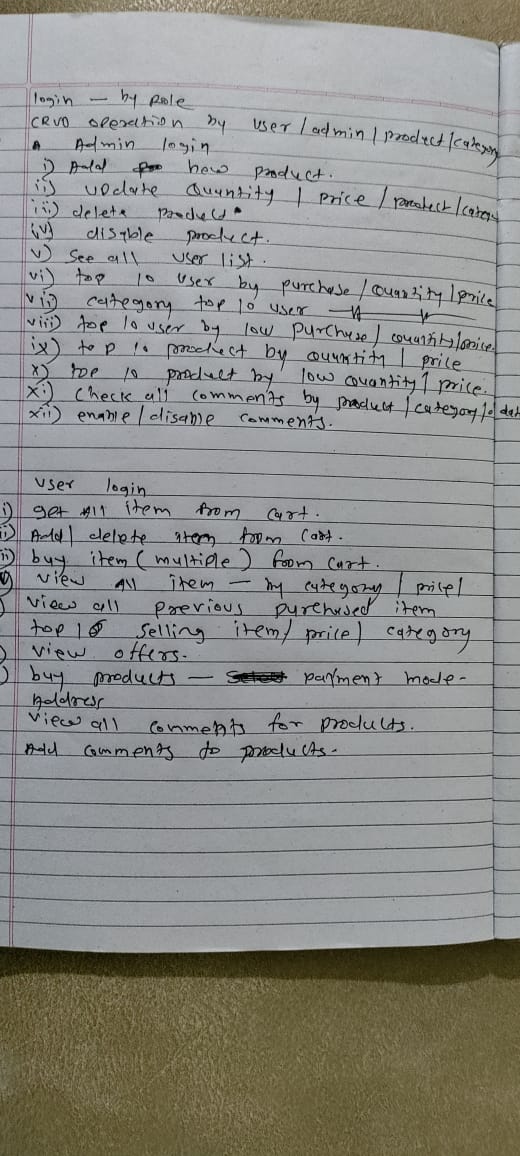 login - by Role
CRUD operation by user / admin / product / category
A Admin login
i) Add new product.
ii) update Quantity / price / product / categ
iii) delete product.
iv) disable product.
v) See all user list.
vi) top 10 user by purchase / quantity / price
vii) category top 10 user
viii) top 10 user by low purchase / quantity / price.
ix) top 10 product by quantity / price
x) top 10 product by low quantity / price.
xi) check all comments by product / category / dat
xii) enable / disable comments.
user login
i) get all item from cart.
ii) Add / delete item from cart.
iii) buy item (multiple) from cart.
view All item - by category / price /
view all previous purchased item
top 10 selling item / price / category
view offers.
buy products - payment mode -
Address
view all comments for products.
Add comments to products.